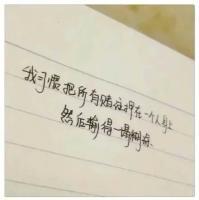 我习惯把所有赌注押在一个人身上
然后输得一塌糊涂.